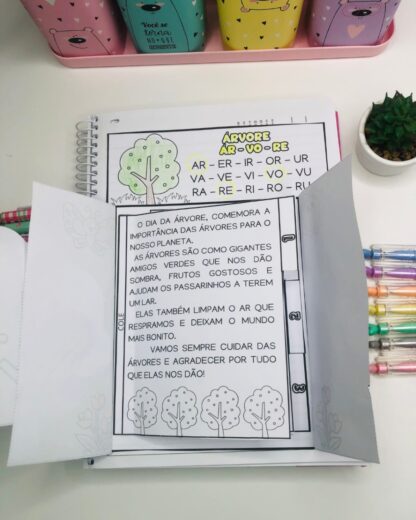 Você se
torna
no que
ÁRVORE
ÁR - VO - RE
AR - ER - IR - OR - UR
VA - VE - VI - VO - VU
RA - RE - RI - RO - RU
O DIA DA ÁRVORE, COMEMORA A
IMPORTÂNCIA DAS ÁRVORES PARA O
NOSSO PLANETA.
AS ÁRVORES SÃO COMO GIGANTES
AMIGOS VERDES QUE NOS DÃO
SOMBRA, FRUTOS GOSTOSOS E
AJUDAM OS PASSARINHOS A TEREM
UM LAR.
ELAS TAMBÉM LIMPAM O AR QUE
RESPIRAMOS E DEIXAM O MUNDO
MAIS BONITO.
VAMOS SEMPRE CUIDAR DAS
ÁRVORES E AGRADECER POR TUDO
QUE ELAS NOS DÃO!
COLE
1
2
3